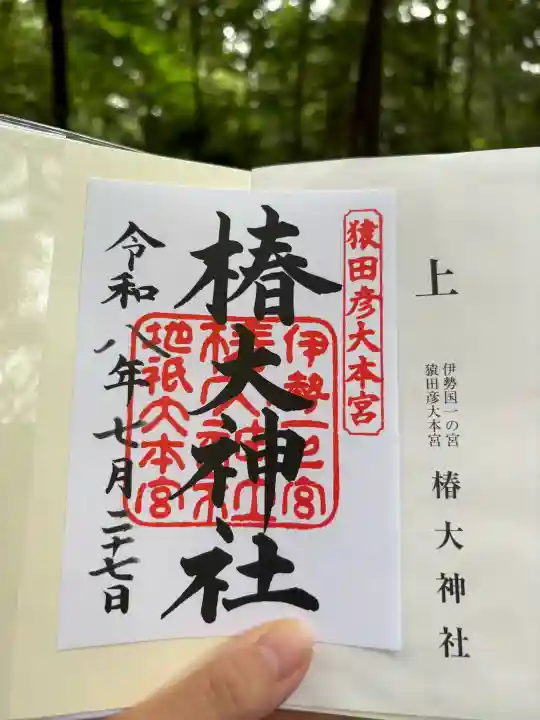 上
伊勢国一の宮
猿田彦大本宮
椿大神社
猿田彦大本宮
椿大神社
伊勢一之宮
椿大神社
地祇大本宮
令和八年七月二十七日